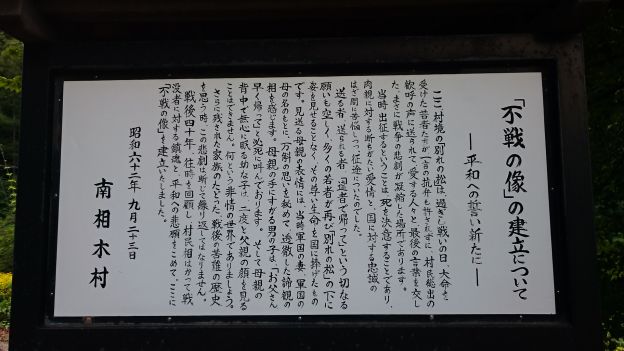 「不戦の像」の建立について
――平和への誓い新たに――
ここ村境の「別れの松」は、過ぎし戦いの日、大命を
受けた若者たちが一言の抗弁も許されずに、村民総出の
歓呼の声に送られて、愛する人々と最後の言葉を交し
た、まさに戦争の悲劇が凝縮した場所であります。
当時、出征するということは、死を決意することであり、
肉親に対する断ちがたい愛情と、国に対する忠誠の
はざ間に苦悩しつつ征途についたのでした。
送る者、送られる者「達者で帰って」という切なる
願いも空しく、多くの若者が再び「別れの松」の下に
姿を見せることなく、その尊い生命を国に捧げたもの
です。見送る母親の表情には、当時軍国の妻、軍国の
母の名のもとに、万斛の思いを秘めて、透徹した諦観の
相を感じます。母親の手にすがる男の子は、「お父さん
早く帰って」と必死に叫んでおります。そして母親の
背中で無心に眠る幼な子は、二度と父親の顔を見る
ことはできません。何という非情の世界でありましょう。
さらに残された家族のたどった、戦後の苦難の歴史
を思う時、この悲劇は断じて繰り返してはなりません。
戦後四十年、往時を回顧し、村民相はかって、戦
没者に対する鎮魂と、平和への悲願をこめて、ここに、
「不戦の像」を建立いたしました。
昭和六十二年 九月二十三日
南相木村